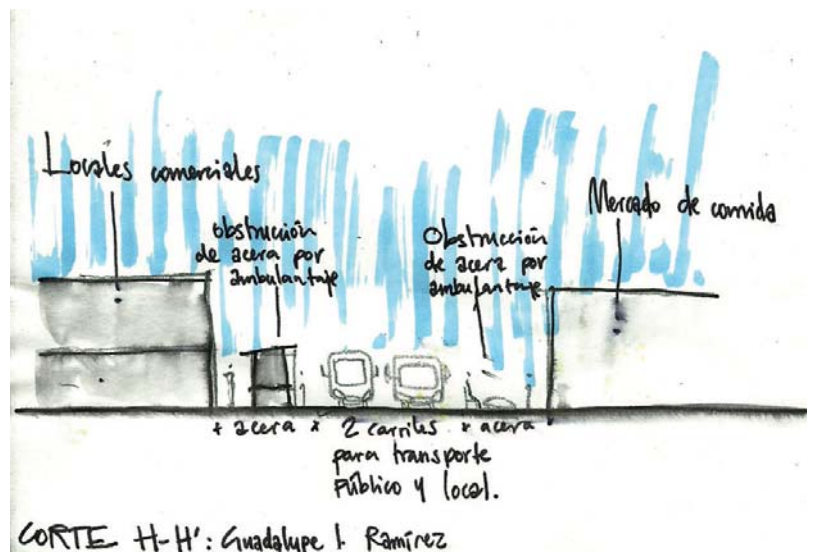 Locales comerciales
obstrucción
de acera por
ambulantaje
Obstrucción
de acera por
ambulantaje
Mercado de comida
+ acera x 2 carriles x acera
para transporte
Público y local.
CORTE H-H': Guadalupe I. Ramírez